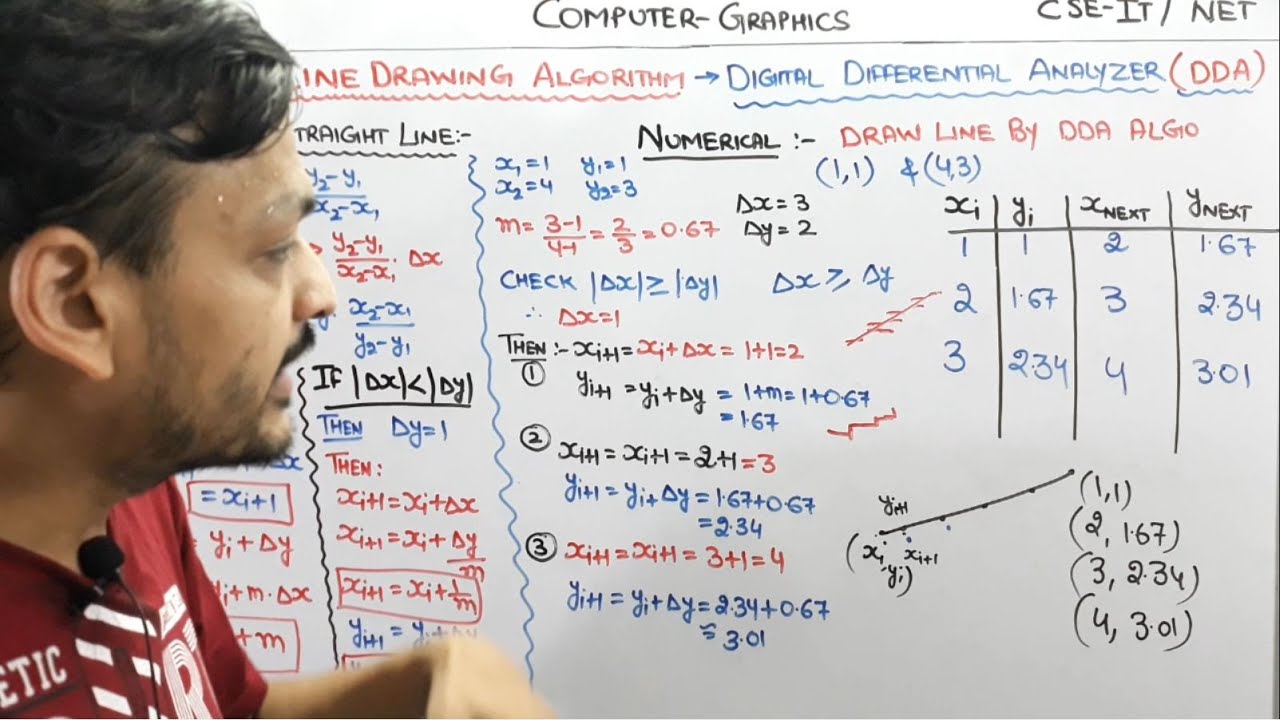 COMPUTER-GRAPHICS
CSE-IT / NET
LINE DRAWING ALGORITHM → DIGITAL DIFFERENTIAL ANALYZER (DDA)
TRAIGHT LINE:-
y₂-y₁
x₂-x₁
y₂-y₁
x₂-x₁ · Δx
x₂-x₁
y₂-y₁
IF |Δx|<|Δy|
THEN Δy=1
THEN:
xi+1=xi+Δx
xi+1=xi+Δy/m
xi+1=xi+1/m
yi+1=yi+Δy
Δx
=xi+1
= yi+Δy
yi+m·Δx
+m
NUMERICAL :- DRAW LINE BY DDA ALGO
(1,1) & (4,3)
x₁=1 y₁=1
x₂=4 y₂=3
Δx=3
Δy=2
m= 3-1/4-1 = 2/3 =0.67
CHECK |Δx|≥|Δy| Δx ≥ Δy
∴ Δx=1
THEN :- xi+1=xi+Δx=1+1=2
① yi+1=yi+Δy=1+m=1+0.67
=1.67
② xi+1=xi+1=2+1=3
yi+1=yi+Δy=1.67+0.67
=2.34
③ xi+1=xi+1=3+1=4
yi+1=yi+Δy=2.34+0.67
≈3.01
xi yi xNEXT yNEXT
1 1 2 1.67
2 1.67 3 2.34
3 2.34 4 3.01
yi+1
(xi xi+1
yi)
(1,1)
(2, 1.67)
(3, 2.34)
(4, 3.01)
ETIC